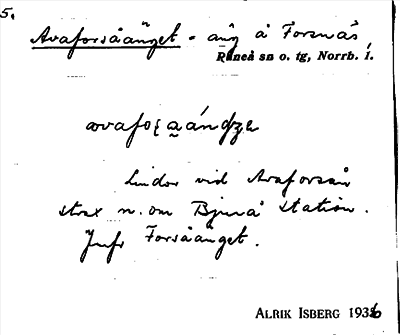 5.
Avaforsåänget - äng å Forsnäs,
Råneå sn o. tg, Norrb. l.
avafoʂ a̰ ándʒɛ
Lindor vid Avaforsån
strax n. om Bjurå station.
Jmfr Forsåänget.
ALRIK ISBERG 1936